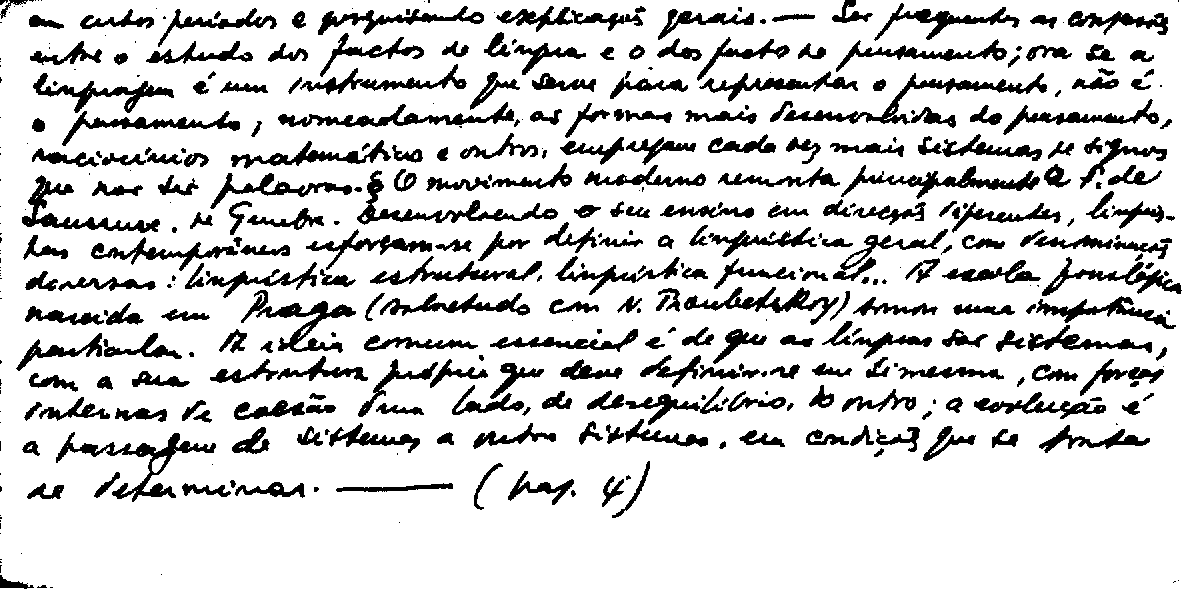 em certos períodos e pesquisando explicações gerais. — São frequentes as confusões
entre o estudo dos factos de língua e o dos factos de pensamento; ora se a
linguagem é um instrumento que serve para representar o pensamento, não é
o pensamento; nomeadamente, as formas mais desenvolvidas do pensamento,
raciocínios matemáticos e outros, empregam cada vez mais sistemas de signos
que não são palavras. § O movimento moderno remonta principalmente a F. de
Saussure, de Genebra. Desenvolvendo o seu ensino em direcções diferentes, linguis-
tas contemporâneos esforçam-se por definir a linguística geral, com denominações
diversas: linguística estrutural, linguística funcional... A escola fonológica
nascida em Praga (sobretudo com N. Troubetskoy) tomou uma importância
particular. A ideia comum essencial é de que as línguas são sistemas,
com a sua estrutura própria que deve definir-se em si mesma, com forças
internas de coesão dum lado, de desequilíbrio, do outro; a evolução é
a passagem de sistemas a outros sistemas, em condições que se trata
de determinar. ——— (pag. 4)